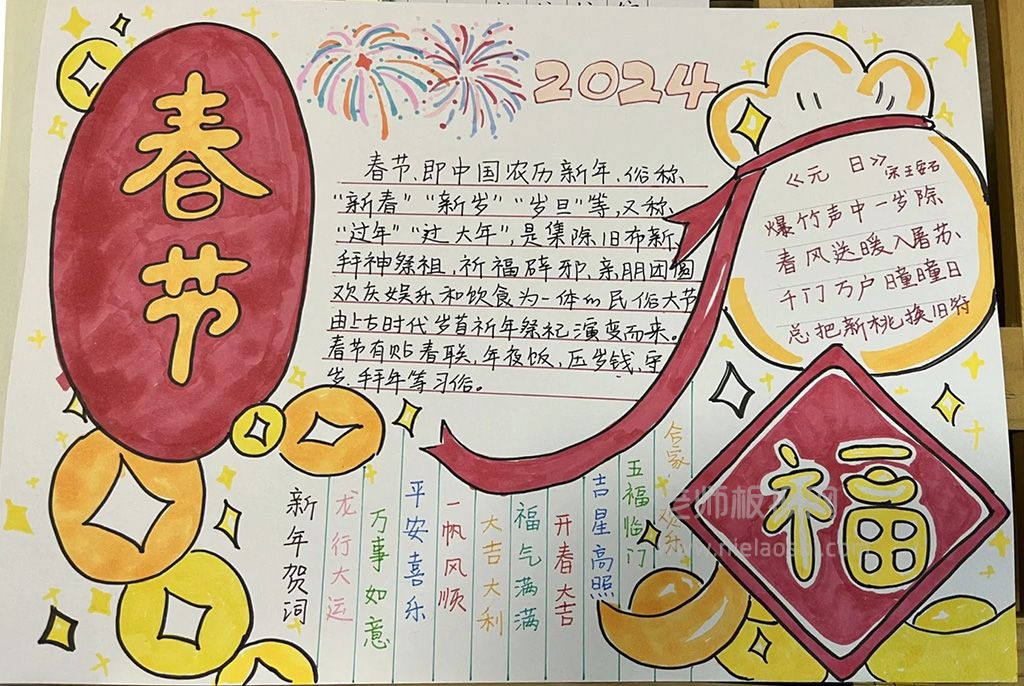 春节
2024
春节、即中国农历新年、俗称、
“新春”“新岁”“岁旦”等,又称、
“过年”“过大年”,是集除旧布新、
拜神祭祖,祈福辟邪、亲朋团圆
欢庆娱乐和饮食为一体的民俗大节
由上古时代岁首祈年祭祀演变而来。
春节有贴春联、年夜饭、压岁钱、守
岁、拜年等习俗。
《元 日》宋王安石
爆竹声中一岁除
春风送暖入屠苏、
千门万户瞳瞳日
总把新桃换旧符
福
新年贺词
龙行大运
万事如意
平安喜乐
一帆风顺
大吉大利
福气满满
开春大吉
吉星高照
五福临门
合家欢乐